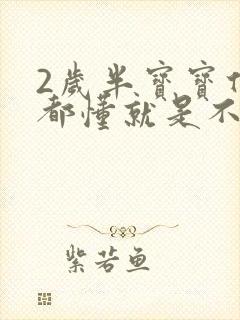 2歲半寶寶什
都懂就是不
紫若鱼